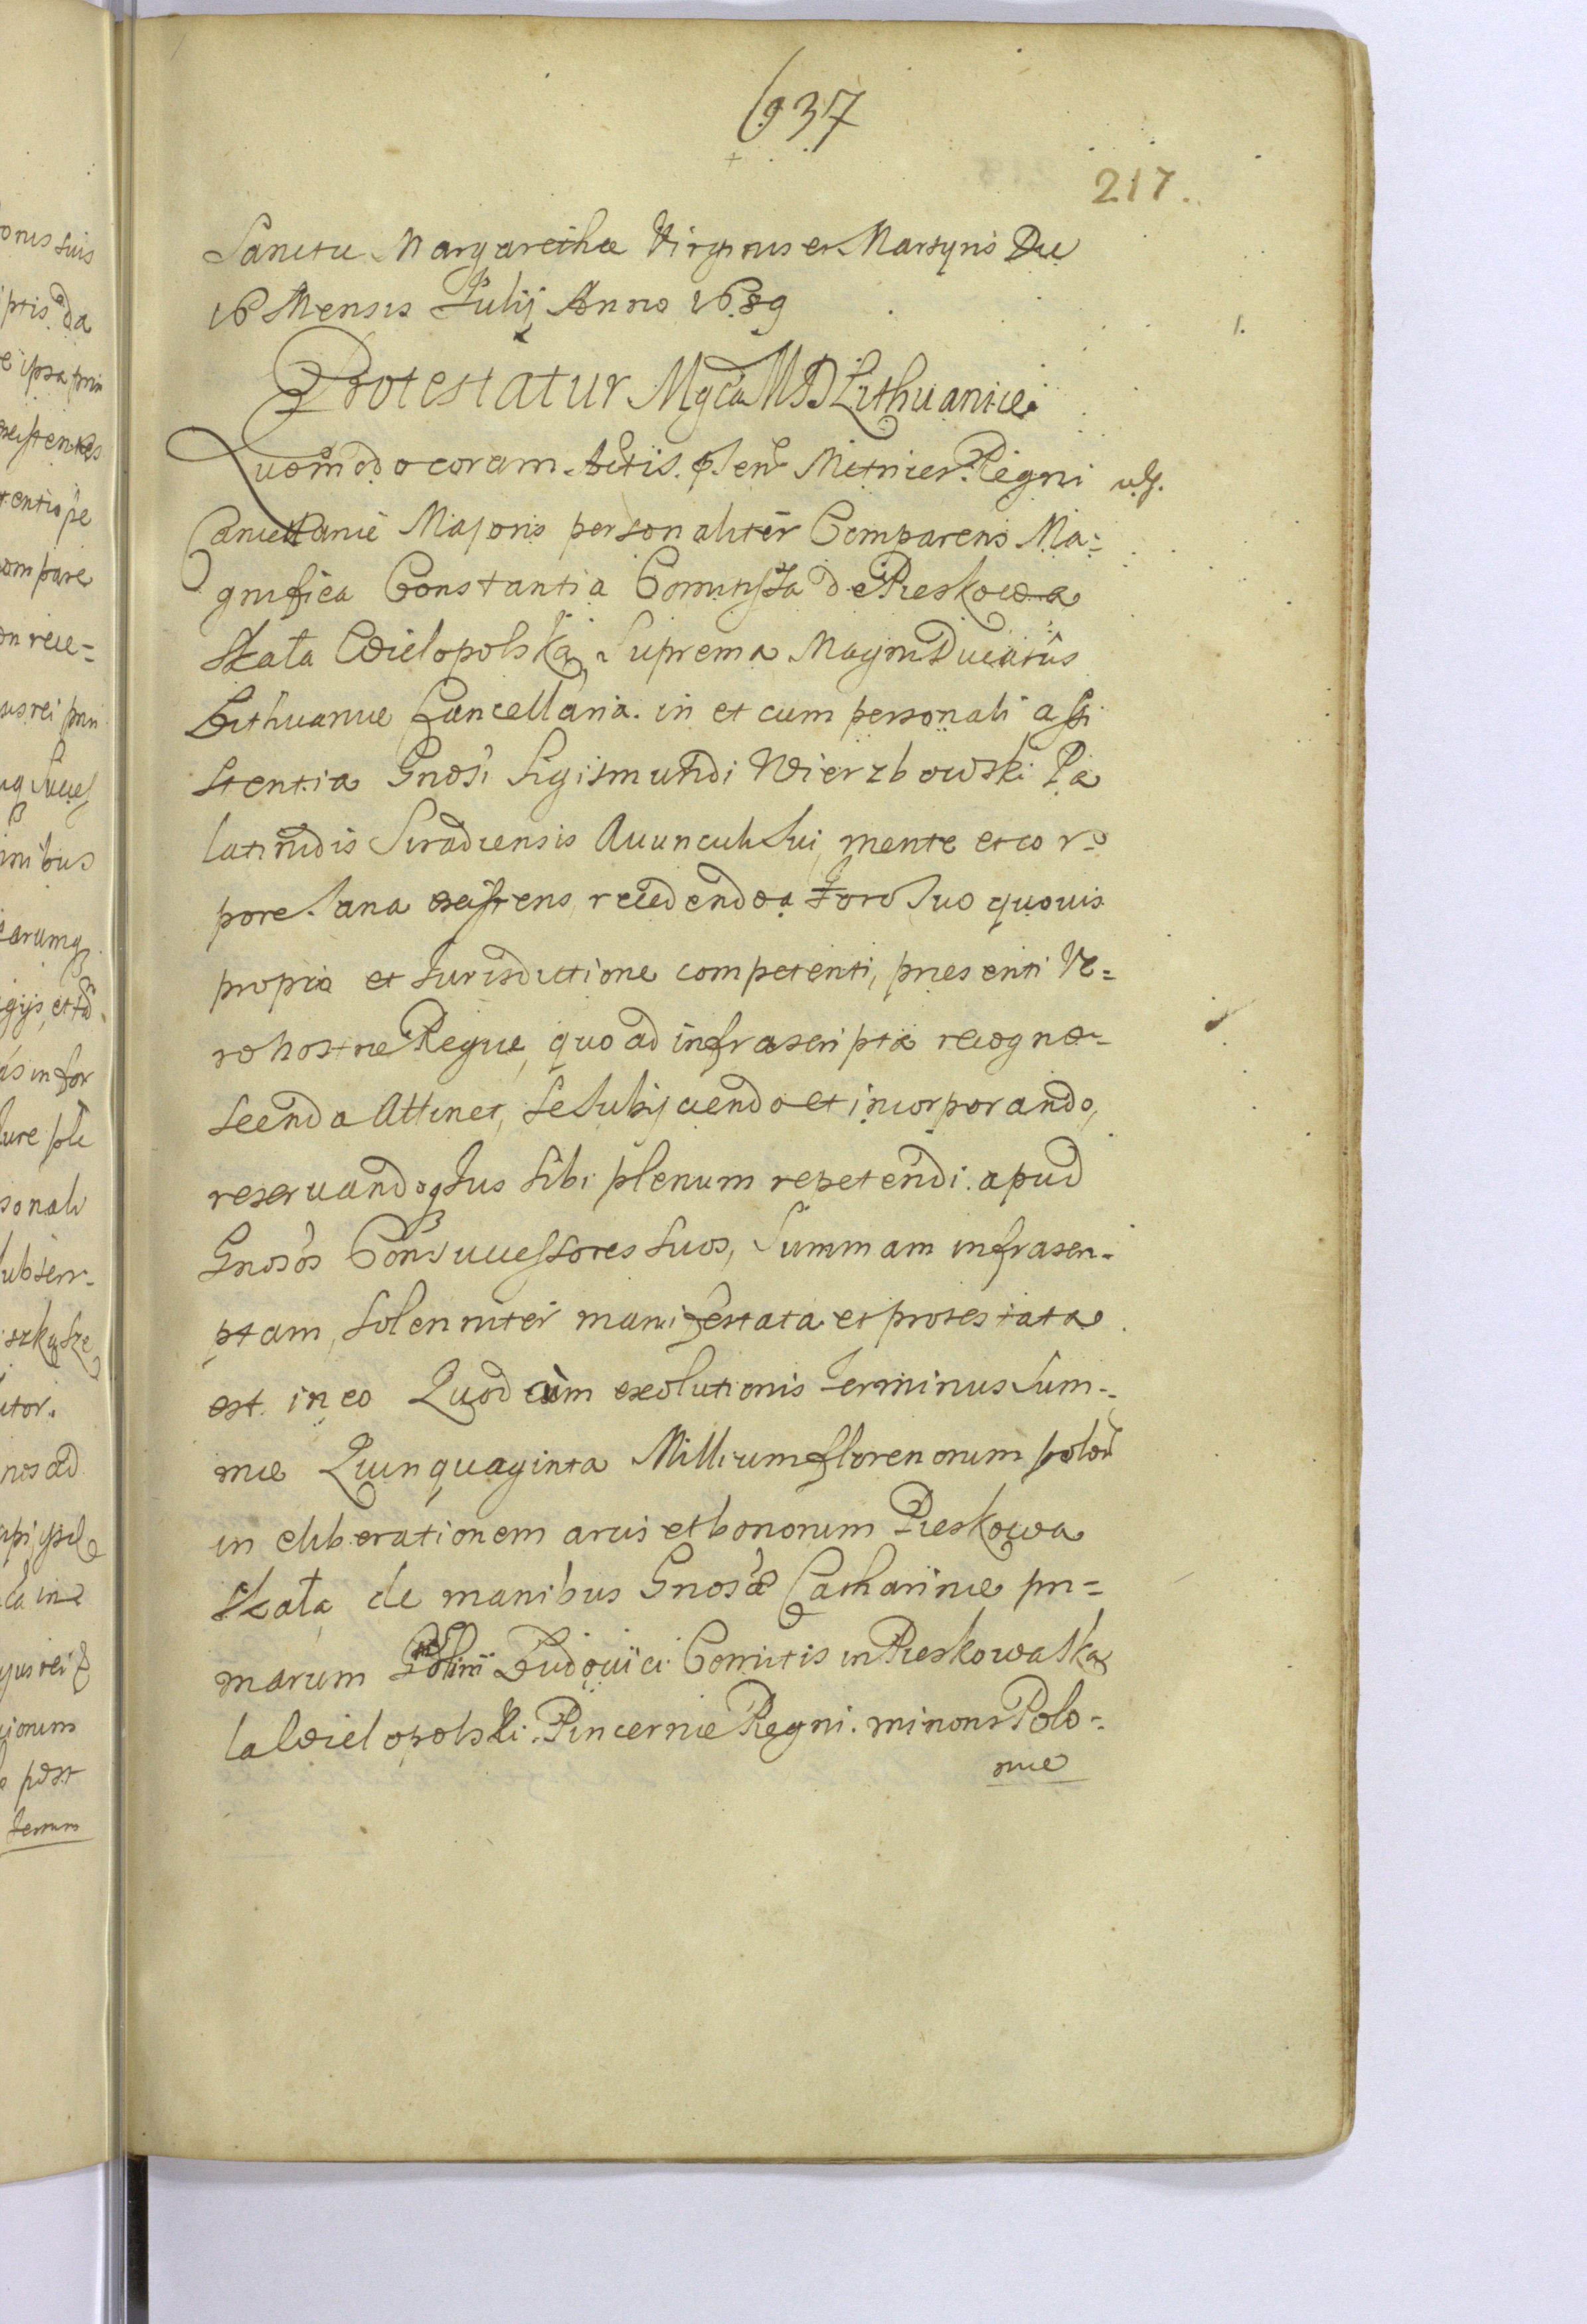 937
217.
Sanctæ Margarethæ Virginis et Martyris Die
16 Mensis Julij Anno 1689
Protestatur Mgca M D Lithuaniæ
Quomodo coram Actis psen Metrices Regni
Cancellariæ Majoris personaliter Comparens Ma=
gnifica Constantia Comitissa de Pieskowa
Skała Wielopolska, Suprema Magni Ducatus
Lithuaniæ Cancellaria in et cum personali assi
stentia Gnosi Sigismundi Wierzbowski Pa
latinidis Siradiensis Avunculi Sui, mente et cor=
pore Sana existens, recedendo a Foro Suo quovis
proprio et Jurisdictione competenti, præsenti Ve=
ro Nostræ Regiæ, quo ad infrascripta recogno=
scenda Attinet, Se Subijciendo et incorporando,
reservandoq Jus Sibi plenum repetendi apud
Gnosos Consuccessores Suos, Summam infrascri=
ptam, Solenniter manifestata et protestata
est in eo Quod cùm exolutionis terminus Sum=
mæ Quinquaginta Millium florenorum polon
in eliberationem arcis et bonorum Pieskowa
Skała de manibus Gnosæ Catharinæ pri=
marum Ludovici Comitis in Pieskowa Ska
la Wielopolski Pincernæ Regni minoris Polo=
niæ